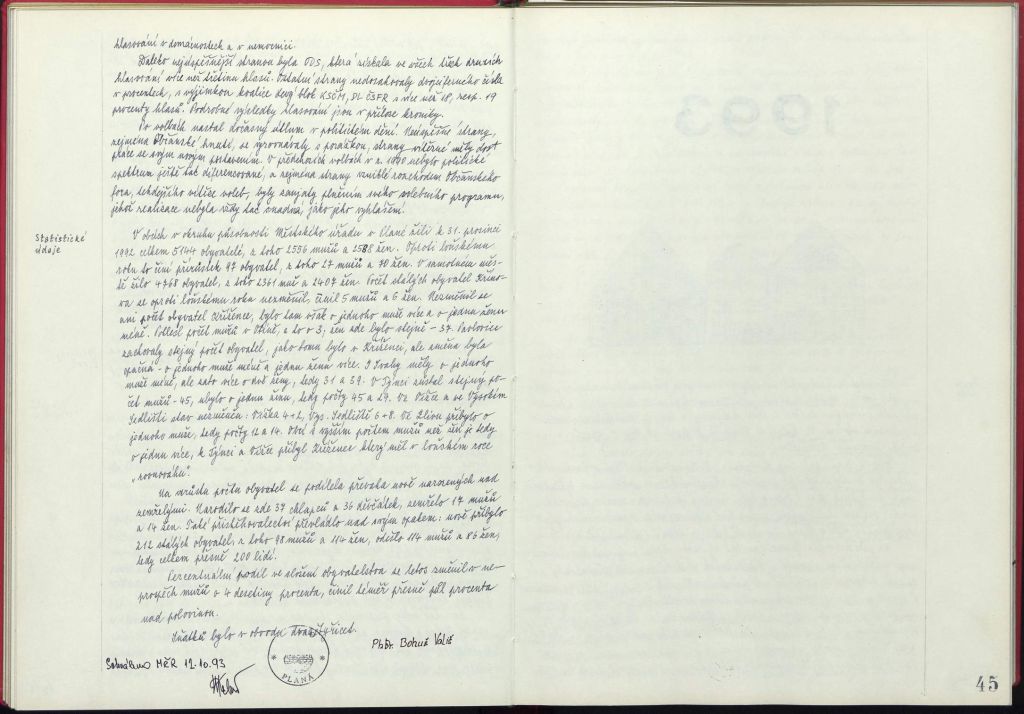 hlasování v domácnostech a v nemocnici.
Daleko nejúspěšnější stranou byla ODS, která získala ve všech třech druzích
hlasování více než třetinu hlasů. Ostatní strany nedosahovaly dvojciferného čísla
v procentech, s výjimkou koalice Levý blok KSČM, DL ČSFR s více než 18, resp. 19
procenty hlasů. Podrobné výsledky hlasování jsou v příloze kroniky.
Po volbách nastal dočasný útlum v politickém dění. Neúspěšné strany,
zejména Občanské hnutí, se vyrovnávaly s porážkou, strany vítězné měly dost
práce se svým novým postavením. V předchozích volbách v r. 1990 nebylo politické
spektrum ještě tak diferencované, a zejména strany vzniklé rozchodem Občanského
fora, tehdejšího vítěze voleb, byly zaujaty plněním svého volebního programu,
jehož realizace nebyla vždy tak snadná, jako jeho vyhlášení.
Statistické
údaje
V obcích v okruhu působnosti Městského úřadu v Plané žili k 31. prosinci
1992 celkem 5144 obyvatelé, z toho 2556 mužů a 2588 žen. Oproti loňskému
roku to činí přírůstek 97 obyvatel, z toho 27 mužů a 70 žen. V samotném měs-
tě žilo 4768 obyvatel, z toho 2361 muž a 2407 žen. Počet stálých obyvatel Křino-
va se oproti loňskému roku nezměnil, činil 5 mužů a 6 žen. Nezměnil se
ani počet obyvatel Křížence, bylo tam však o jednoho muže více a o jednu ženu
méně. Poklesl počet mužů v Otíně, a to o 3; žen zde bylo stejně - 37. Pavlovice
zachovaly stejný počet obyvatel, jako tomu bylo v Kříženci, ale změna byla
opačná - o jednoho muže méně a jednu ženu více. I Svahy měly o jednoho
muže méně, ale zato více o dvě ženy, tedy 31 a 39. V Týnci zůstal stejný po-
čet mužů - 45, ubylo o jednu ženu, tedy počty 45 a 29. Ve Vížce a ve Vysokém
Sedlišti stav nezměněn: Vížka 4+2, Vys. Sedliště 6+8. Ve Zlivu přibylo o
jednoho muže, tedy počty 12 a 14. Obcí s vyšším počtem mužů než žen je tedy
o jednu více, k Týnci a Vížce přibyl Kříženec který měl v loňském roce
„rovnováhu“.
Na vzrůstu počtu obyvatel se podílela převaha nově narozených nad
zemřelými. Narodilo se zde 37 chlapců a 36 děvčátek, zemřelo 17 mužů
a 14 žen. Také přistěhovalectví převládlo nad svým opakem: nově přibylo
212 stálých obyvatel, z toho 98 mužů a 114 žen, odešlo 114 mužů a 86 žen,
tedy celkem přesně 200 lidí.
Percentuální podíl ve složení obyvatelstva se letos změnil v ne-
prospěch mužů o 4 desetiny procenta, činil téměř přesně půl procenta
nad polovinou.
Sňatků bylo v obvodu dvaačtyřicet.
PhDr. Bohuš Vališ
Schváleno MěR 12.10.93
PLANÁ
1993
45